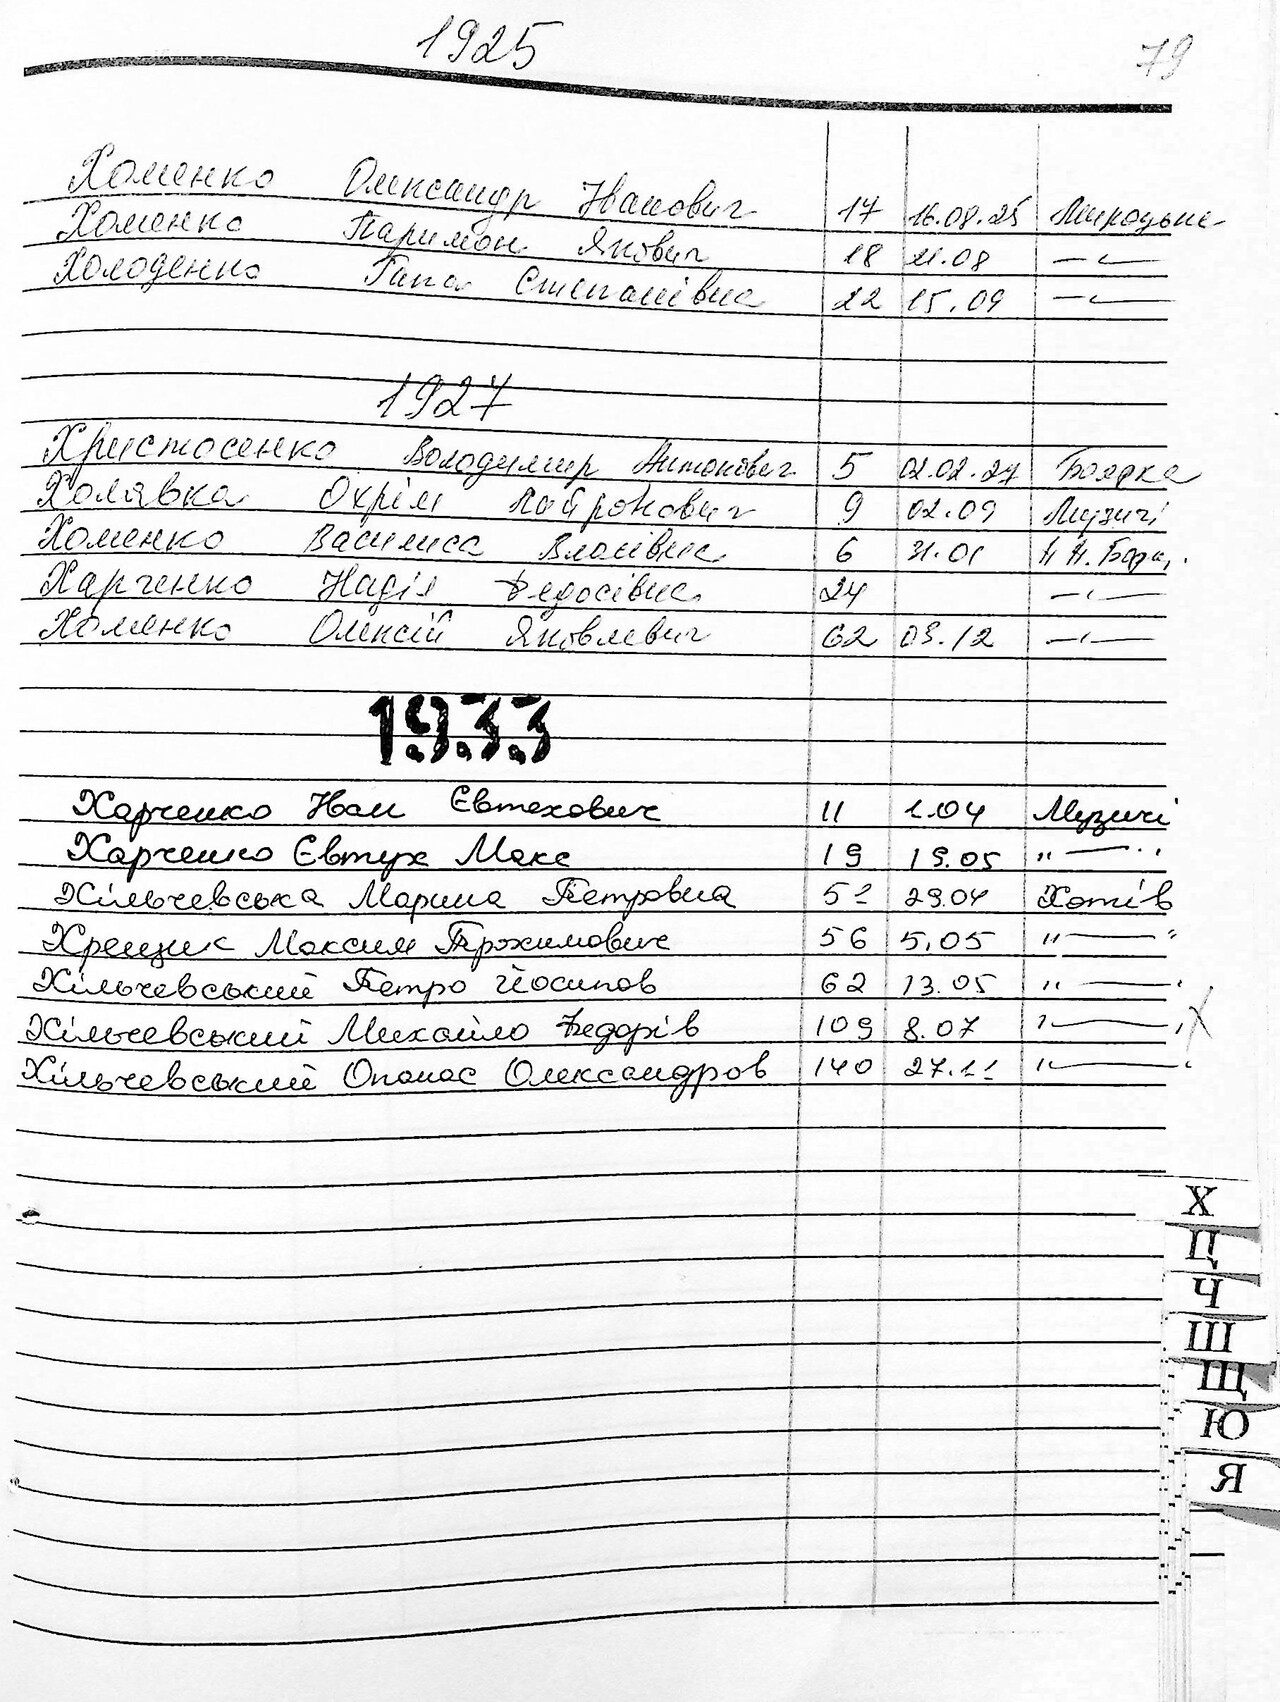 1925
79
Хоменко Олександр Іванович 17 16.08.25 Микоцьке
Хоменко Паримон Якович 18 21.08 —"—
Холоденко Гапа Степанівна 22 15.09 —"—
1927
Христосенко Володимир Антонович 5 02.02.27 Боярка
Холявка Охрім Лайронович 9 02.09 Музичі
Хоменко Василиса Власівна 6 31.01
Харченко Надія Федосівна 24 —"—
Хоменко Олексій Яковлевич 62 03.12 —"—
1933
Харченко Іван Євтехович 11 1.04 Музичі
Харченко Євтух Макс 19 19.05 "—"
Хільчевська Марина Петровна 51 29.04 Хотів
Хрещик Максим Трохимович 56 5.05 "—"
Хільчевський Петро Йосипов 62 13.05 "—"
Хільчевський Михайло Федорів 109 8.07 "—" X
Хільчевський Опанас Олександров 140 27.11 "—"
Х
Ц
Ч
Ш
Щ
Ю
Я